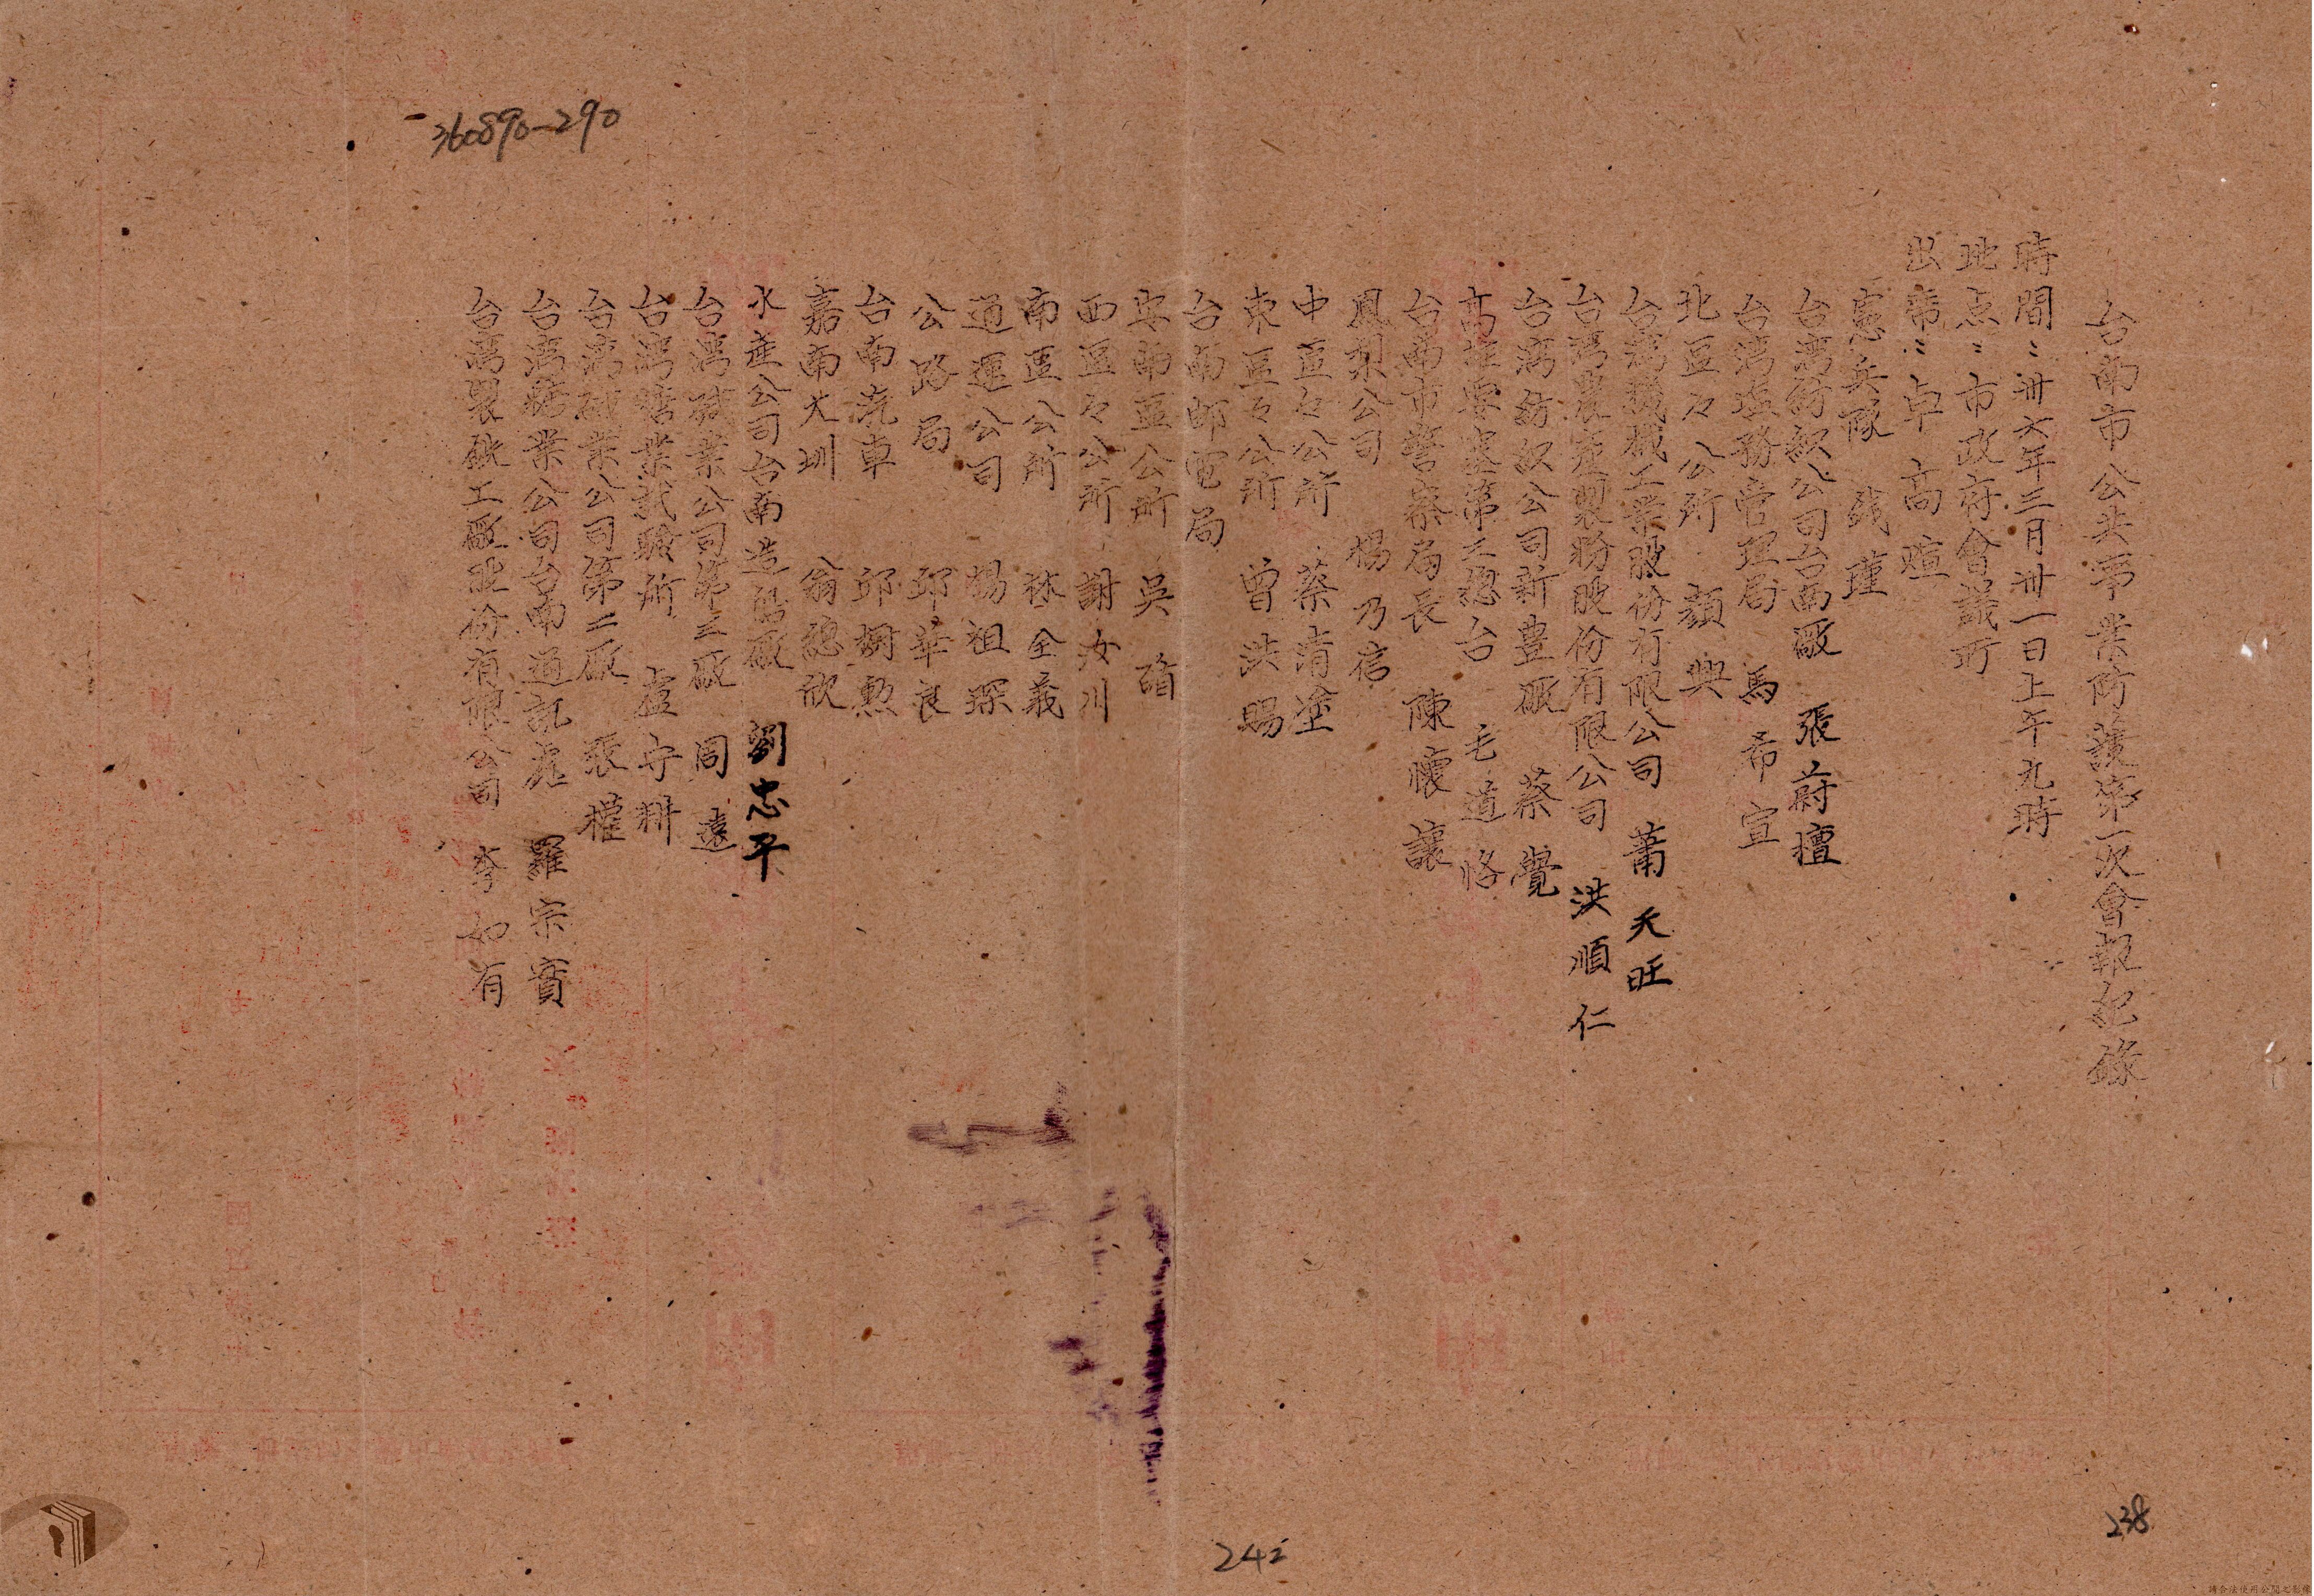 台南市公共事業防護第一次會報紀錄
時間：卅六年三月卅一日上午九時
地点：市政府會議所
出席：卓高煊
憲兵隊 錢瑾
台湾紡織公司台南廠 張蔚檀
台湾塩務管理局 馬希宣
北區々公所 顏興
台湾機械工業股份有限公司 蕭天旺
台湾農產製粉股份有限公司 洪順仁
台湾紡織公司新豊廠 蔡覺
高雄要塞第三總台 毛道恪
台南市警察局長 陳懷讓
鳳梨公司 楊乃信
中區々公所 蔡清塗
東區々公所 曾洪賜
台南郵電局
安南區公所 吳
西區々公所 謝汝川
南區公所 林全義
通運公司 楊祖琛
公路局 邱華良
台南汽車 邱榭勲
嘉南大圳 翁總欣
水產公司台南造船廠 劉忠平
台灣碱業公司第三廠 周遠
台灣糖業試驗所 盧守耕
台湾碱業公司第二廠 張權
台湾糖業公司台南通訊處 羅宗實
台湾製紙工廠股份有限公司 李如有
360890-290
242
238
請合法使用公開之影像